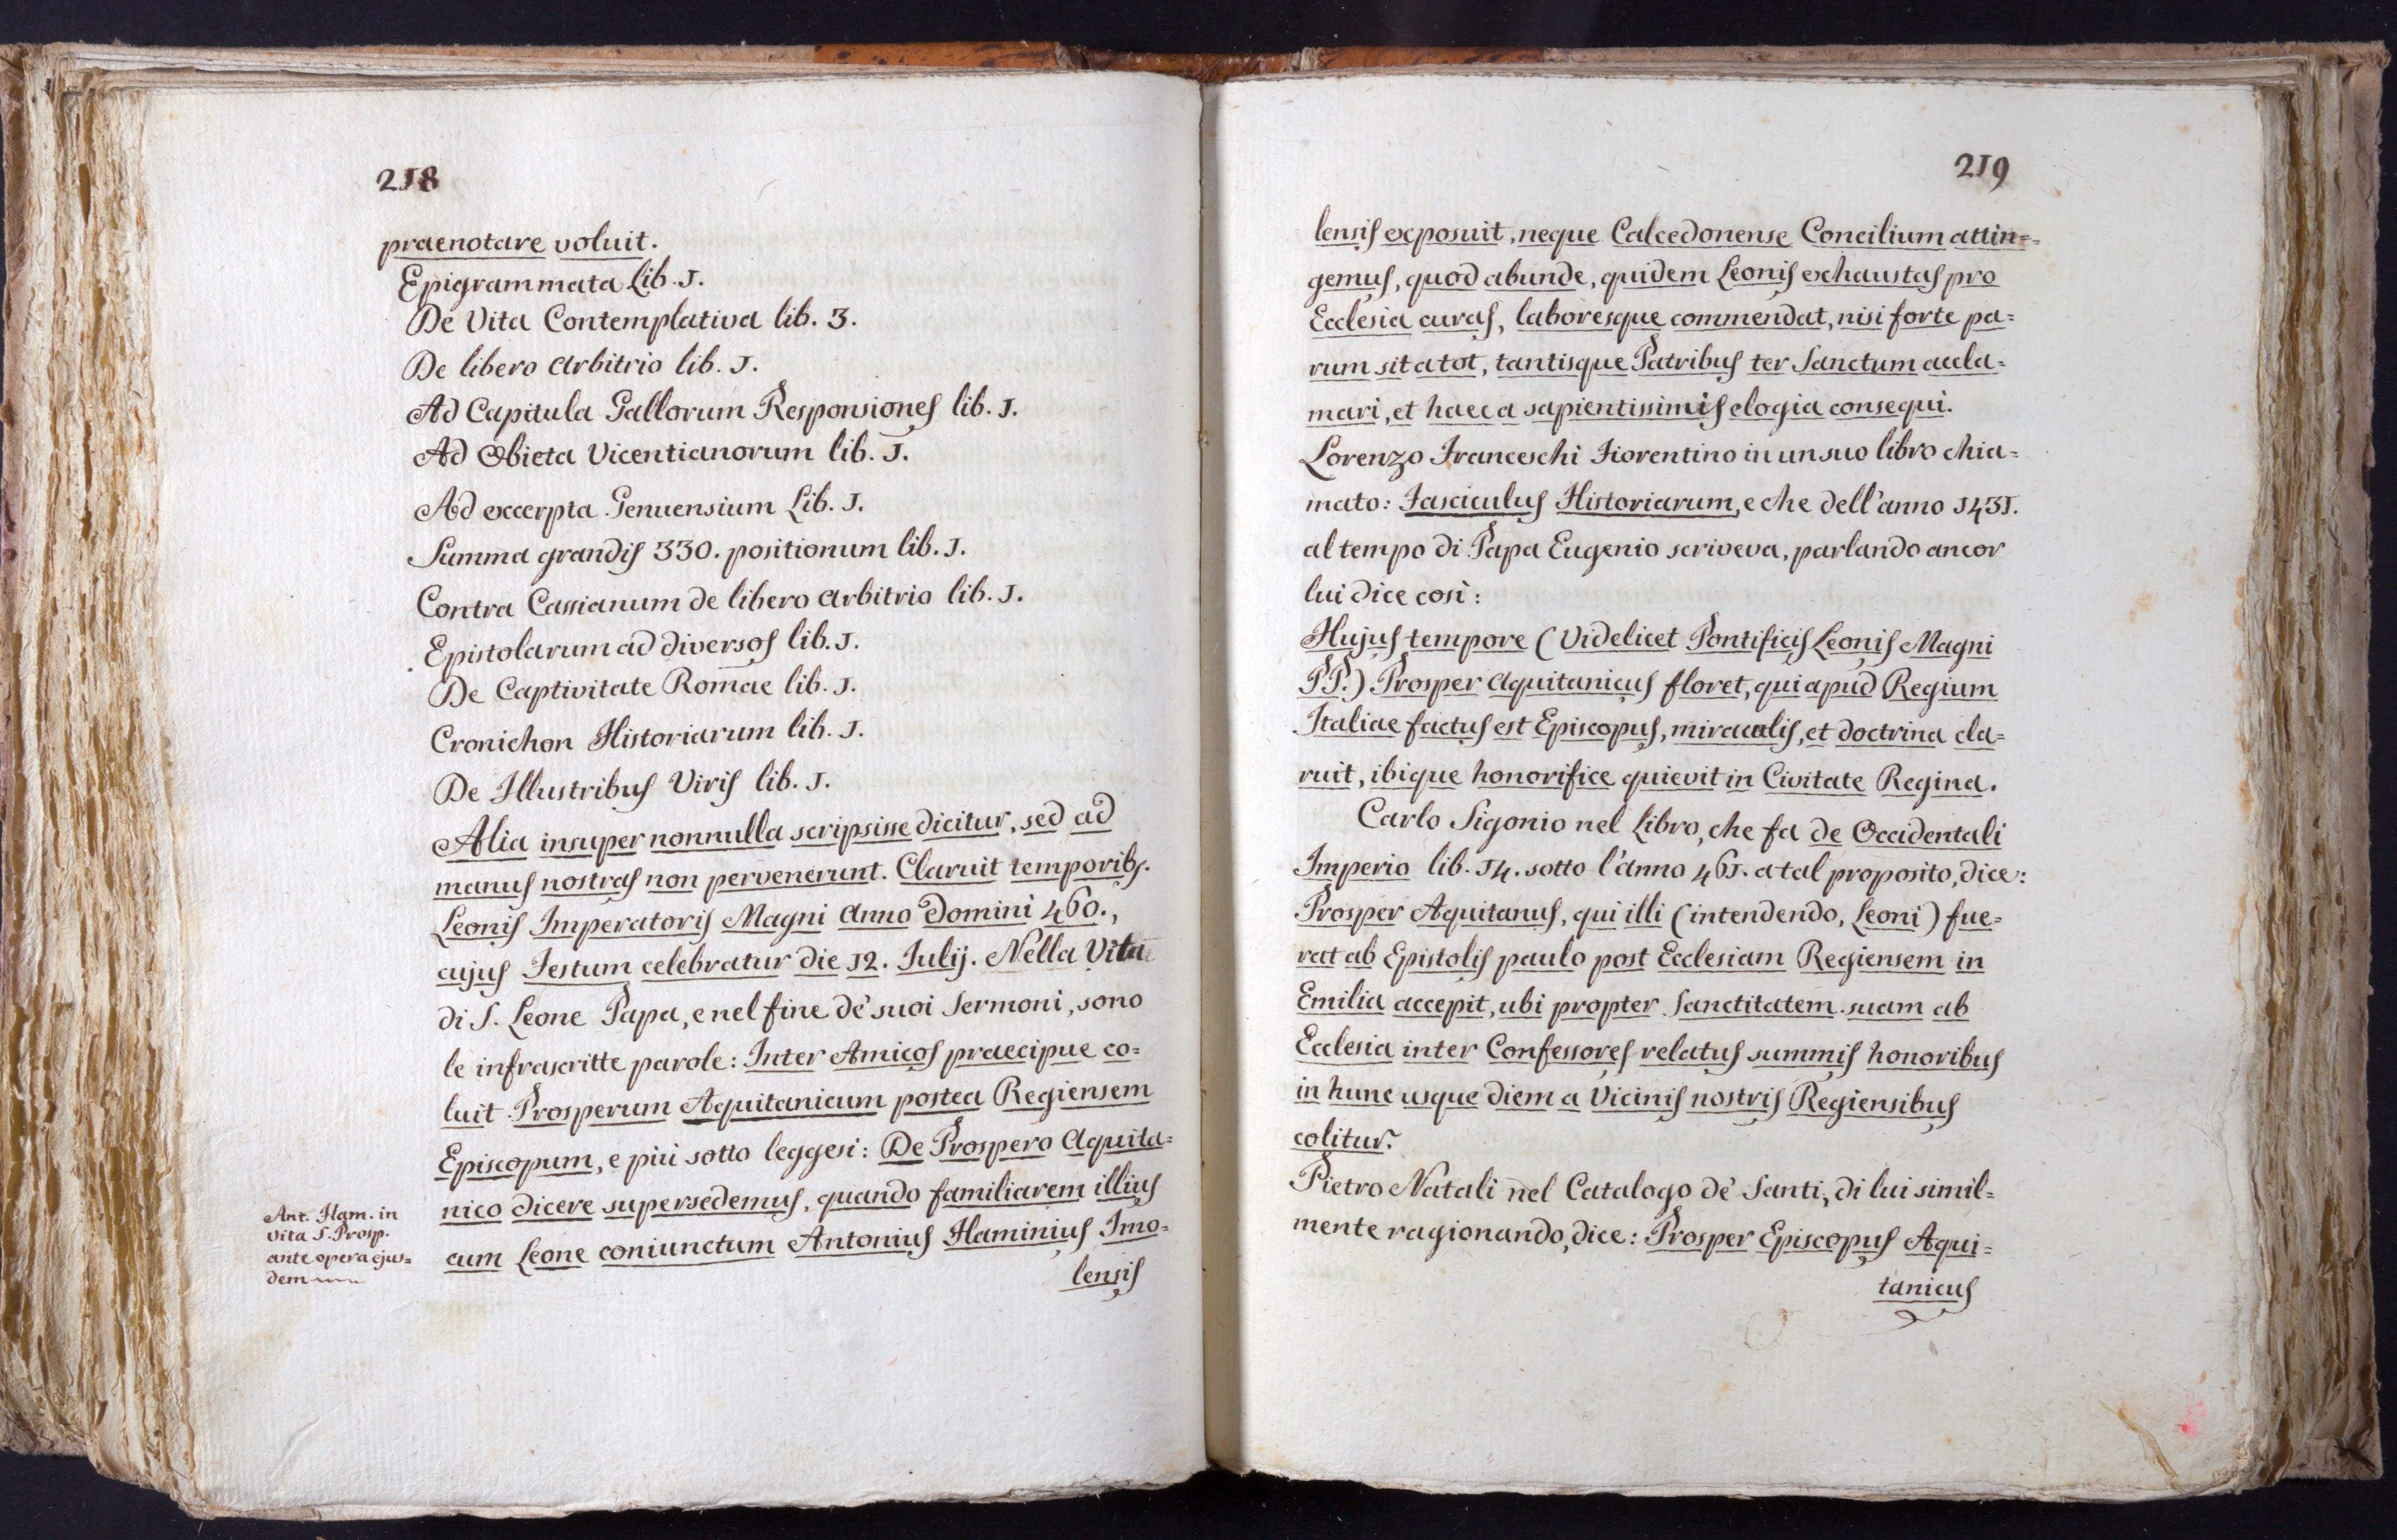 218
praenotare voluit.
Epigrammata Lib. 1.
De Vita Contemplativa lib. 3.
De libero arbitrio lib. 1.
Ad Capitula Gallorum Responsiones lib. 1.
Ad Obieta Vicentianorum lib. 1.
Ad excerpta Genuensium Lib. 1.
Summa grandis 330. positionum lib. 1.
Contra Cassianum de libero arbitrio lib. 1.
Epistolarum ad diversos lib. 1.
De Captivitate Romae lib. 1.
Cronichon Historiarum lib. 1.
De Illustribus Viris lib. 1.
Alia insuper nonnulla scripsisse dicitur, sed ad
manus nostras non pervenerunt. Claruit temporibs.
Leonis Imperatoris Magni Anno Domini 460.,
cujus Festum celebratur die 12. Iulij. Nella Vita
di S. Leone Papa, e nel fine de' suoi Sermoni, sono
le infrascritte parole: Inter Amicos praecipue co=
luit Prosperum Aquitanicum postea Regiensem
Episcopum, e più sotto leggesi: De Prospero Aquita=
nico dicere supersedemus, quando familiarem illius
cum Leone coniunctum Antonius Flaminius Imo=
lensis
Ant. Flam. in
vita S. Prosp.
ante opera ejus=
dem
219
lensis exposuit, neque Calcedonense Concilium attin=
gemus, quod abunde, quidem Leonis exhaustas pro
Ecclesia curas, laboresque commendat, nisi forte pa=
rum sit a tot, tantisque Patribus ter Sanctum accla=
mari, et haec a sapientissimis elogia consequi.
Lorenzo Franceschi Fiorentino in un suo libro chia=
mato: Fasciculus Historiarum, e che dell'anno 1431.
al tempo di Papa Eugenio scriveva, parlando ancor
lui dice così:
Hujus tempore (Videlicet Pontificis Leonis Magni
PP.) Prosper Aquitanicus floret, qui apud Regium
Italiae factus est Episcopus, miraculis, et doctrina cla=
ruit, ibique honorifice quievit in Civitate Regina.
Carlo Sigonio nel Libro, che fa de Occidentali
Imperio lib. 14. sotto l'anno 461. a tal proposito, dice:
Prosper Aquitanus, qui illi (intendendo, Leoni) fue=
rat ab Epistolis paulo post Ecclesiam Regiensem in
Emilia accepit, ubi propter Sanctitatem suam ab
Ecclesia inter Confessores relatus summis honoribus
in hunc usque diem a Vicinis nostris Regiensibus
colitur.
Pietro Natali nel Catalogo de' Santi, di lui simil=
mente ragionando, dice: Prosper Episcopus Aqui=
tanicus